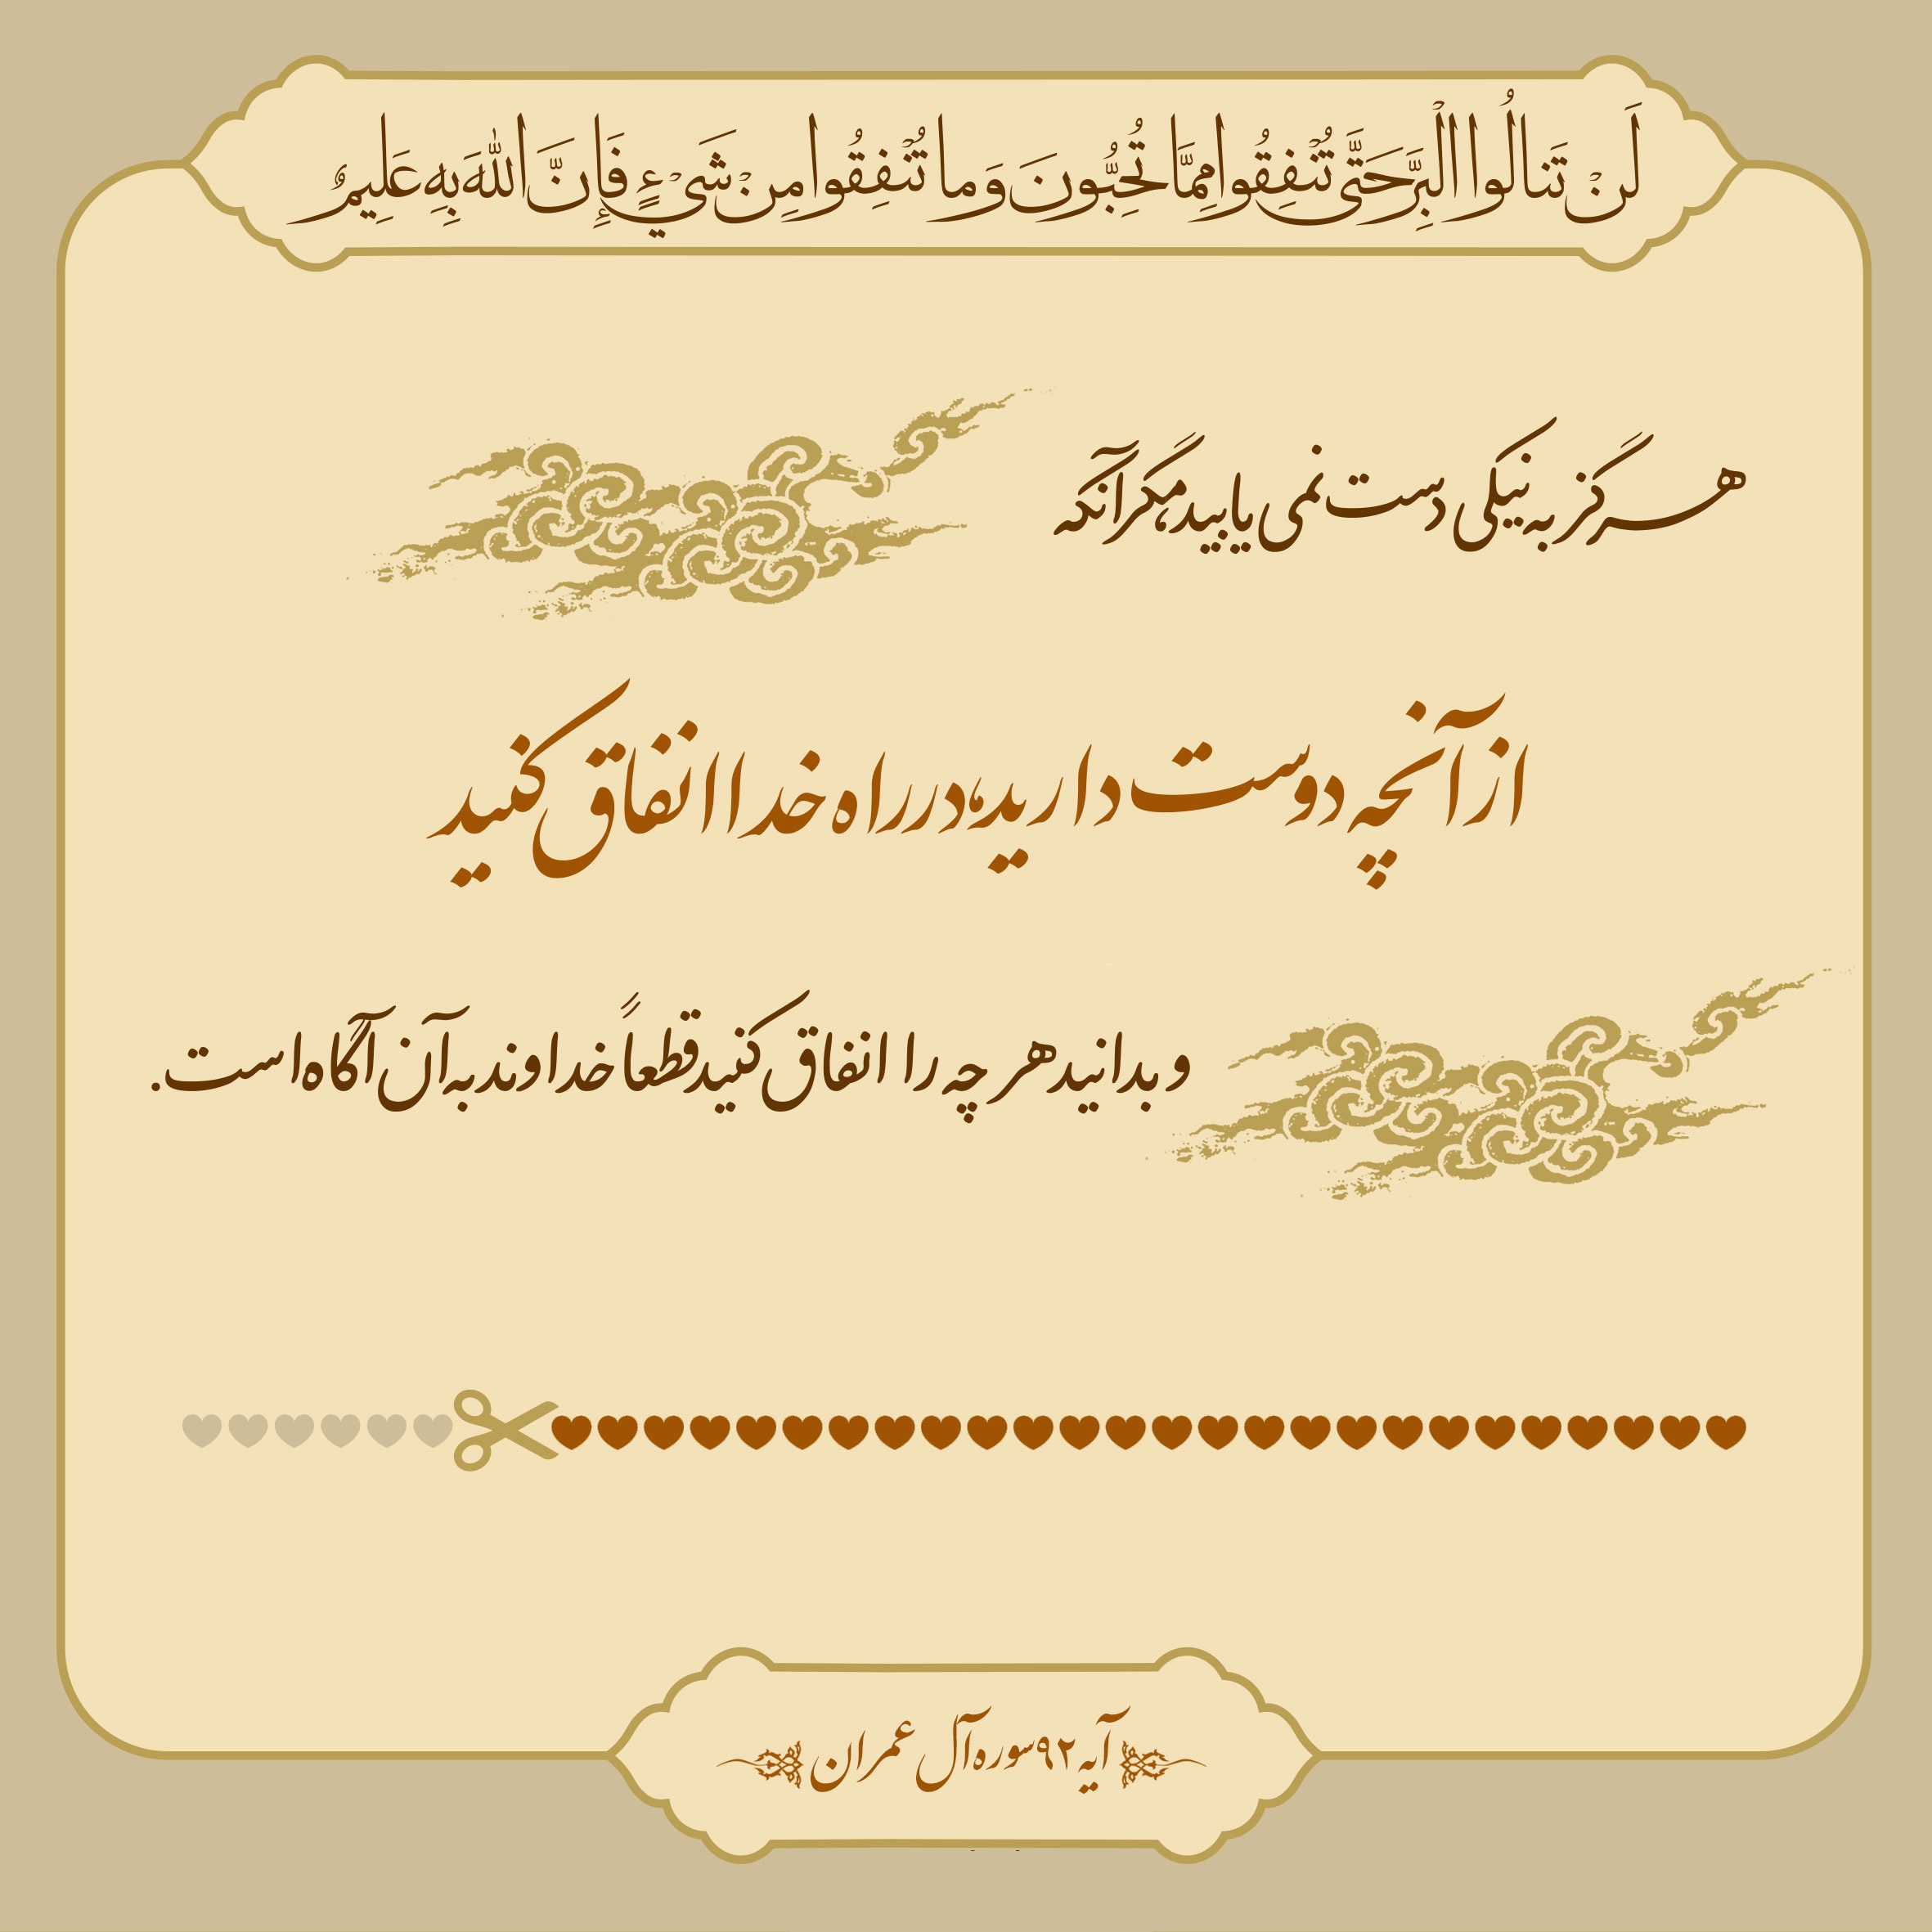 لَن تَنَالُوا الْبِرَّ حَتَّىٰ تُنفِقُوا مِمَّا تُحِبُّونَ وَمَا تُنفِقُوا مِن شَيْءٍ فَإِنَّ اللَّهَ بِهِ عَلِيمٌ
هرگز به نیکی دست نمی یابید مگر آنکه
از آنچه دوست دارید در راه خدا انفاق کنید
و بدانید هر چه را انفاق کنید قطعاً خداوند به آن آگاه است.
آیه ۹۲ سوره آل عمران